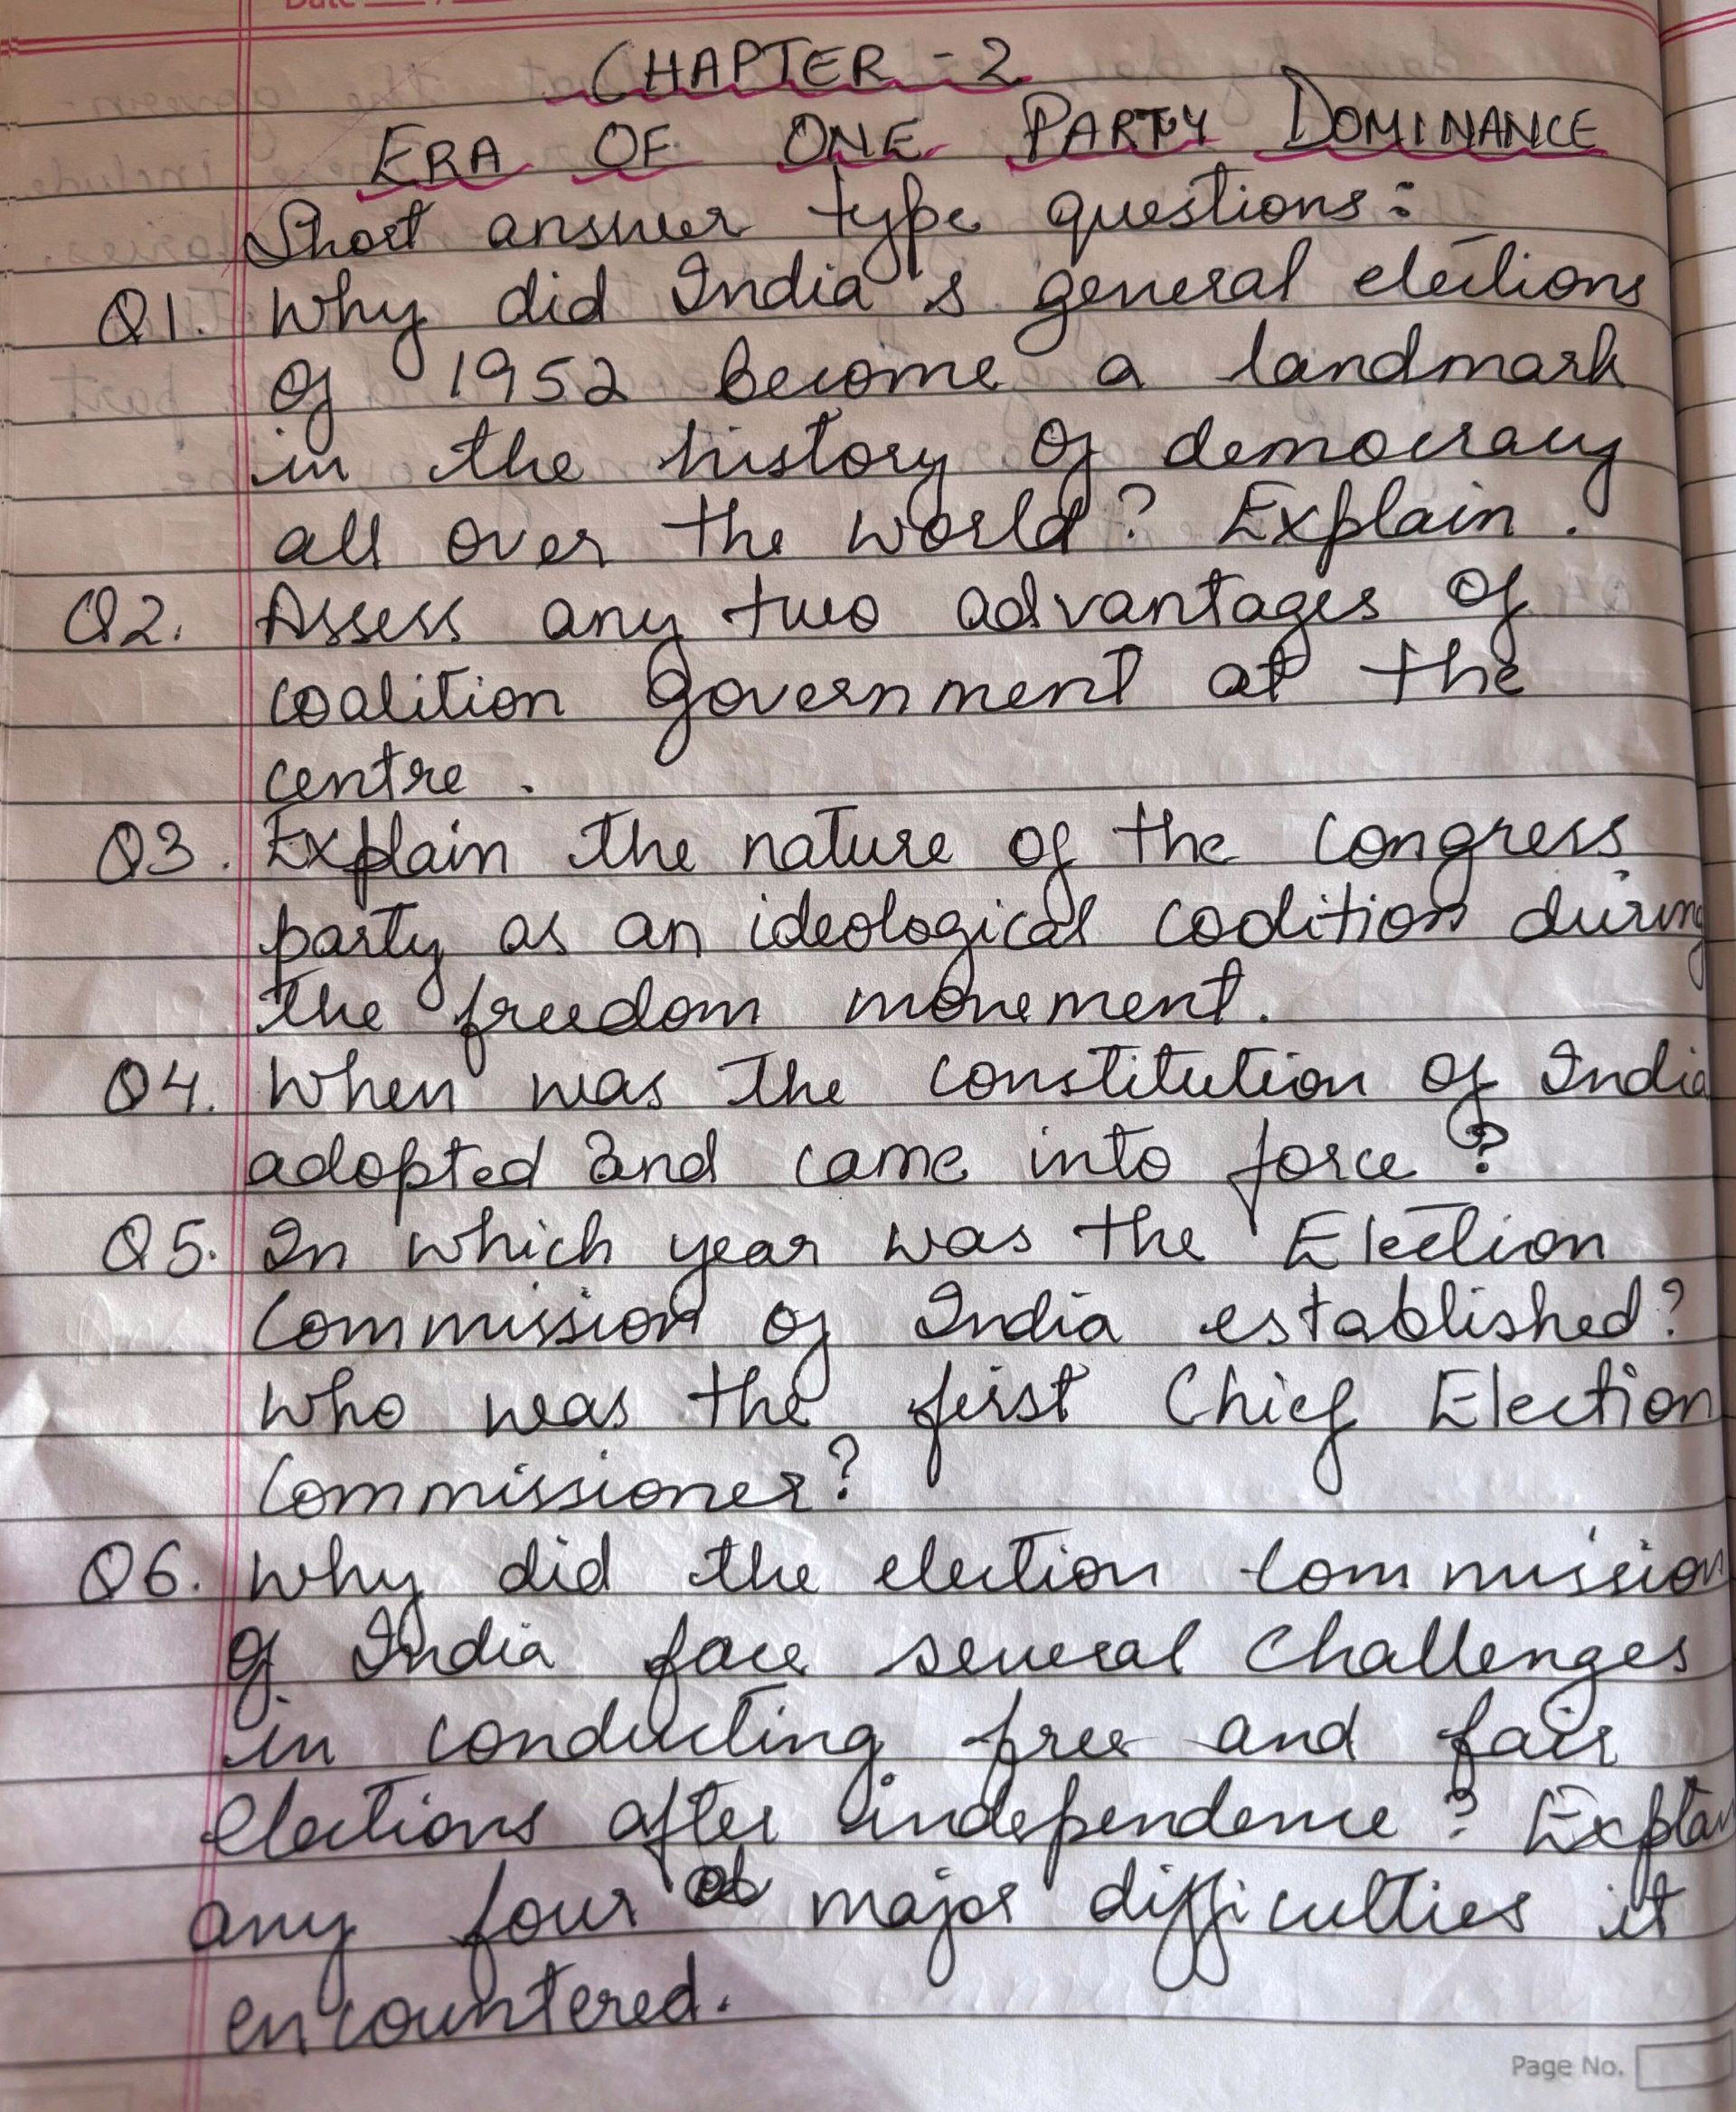 Date
CHAPTER - 2
ERA OF ONE PARTY DOMINANCE
Short answer type questions:
Q1. Why did India's general elections
of 1952 become a landmark
in the history of democracy
all over the world? Explain.
Q2. Assess any two advantages of
coalition government at the
centre.
Q3. Explain the nature of the Congress
party as an ideological coalition during
the freedom movement.
Q4. When was the constitution of India
adopted and came into force?
Q5. In which year was the Election
Commission of India established?
Who was the first Chief Election
Commissioner?
Q6. Why did the election commission
of India face several challenges
in conducting free and fair
elections after independence? Explain
any four major difficulties it
encountered.
Page No.